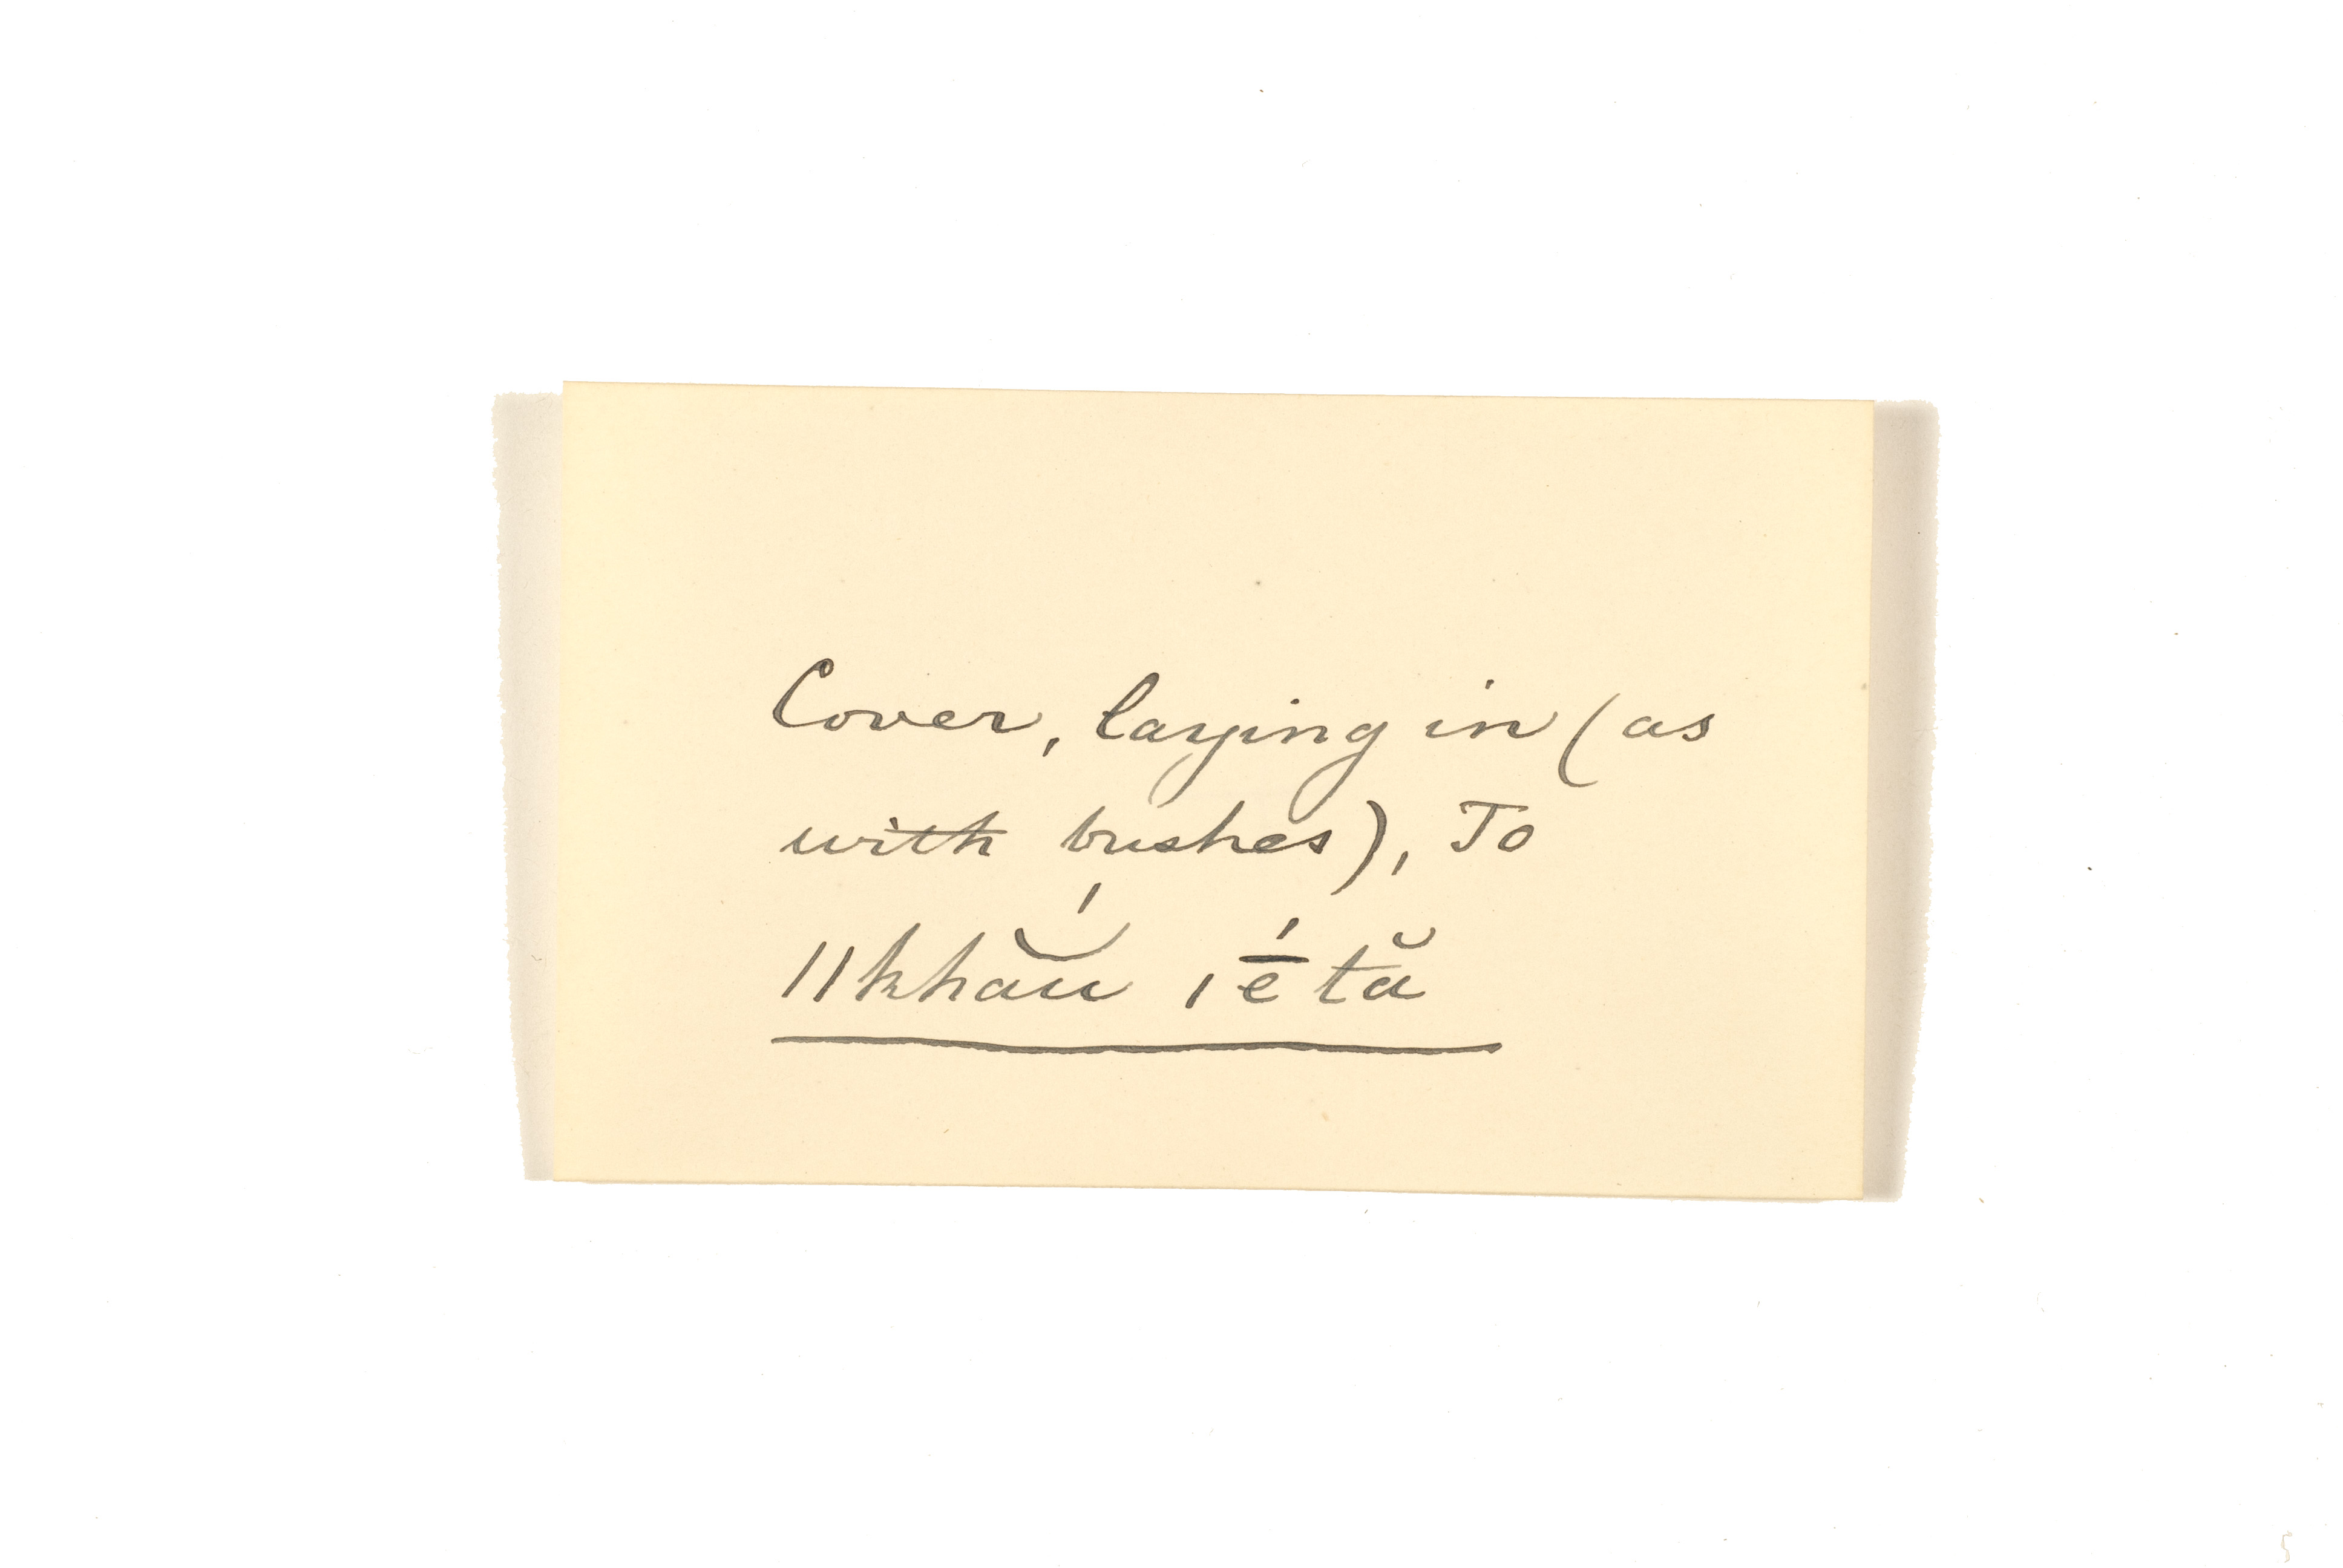 Cover, laying in (as
with bushes), To
||khăú |ḗtă